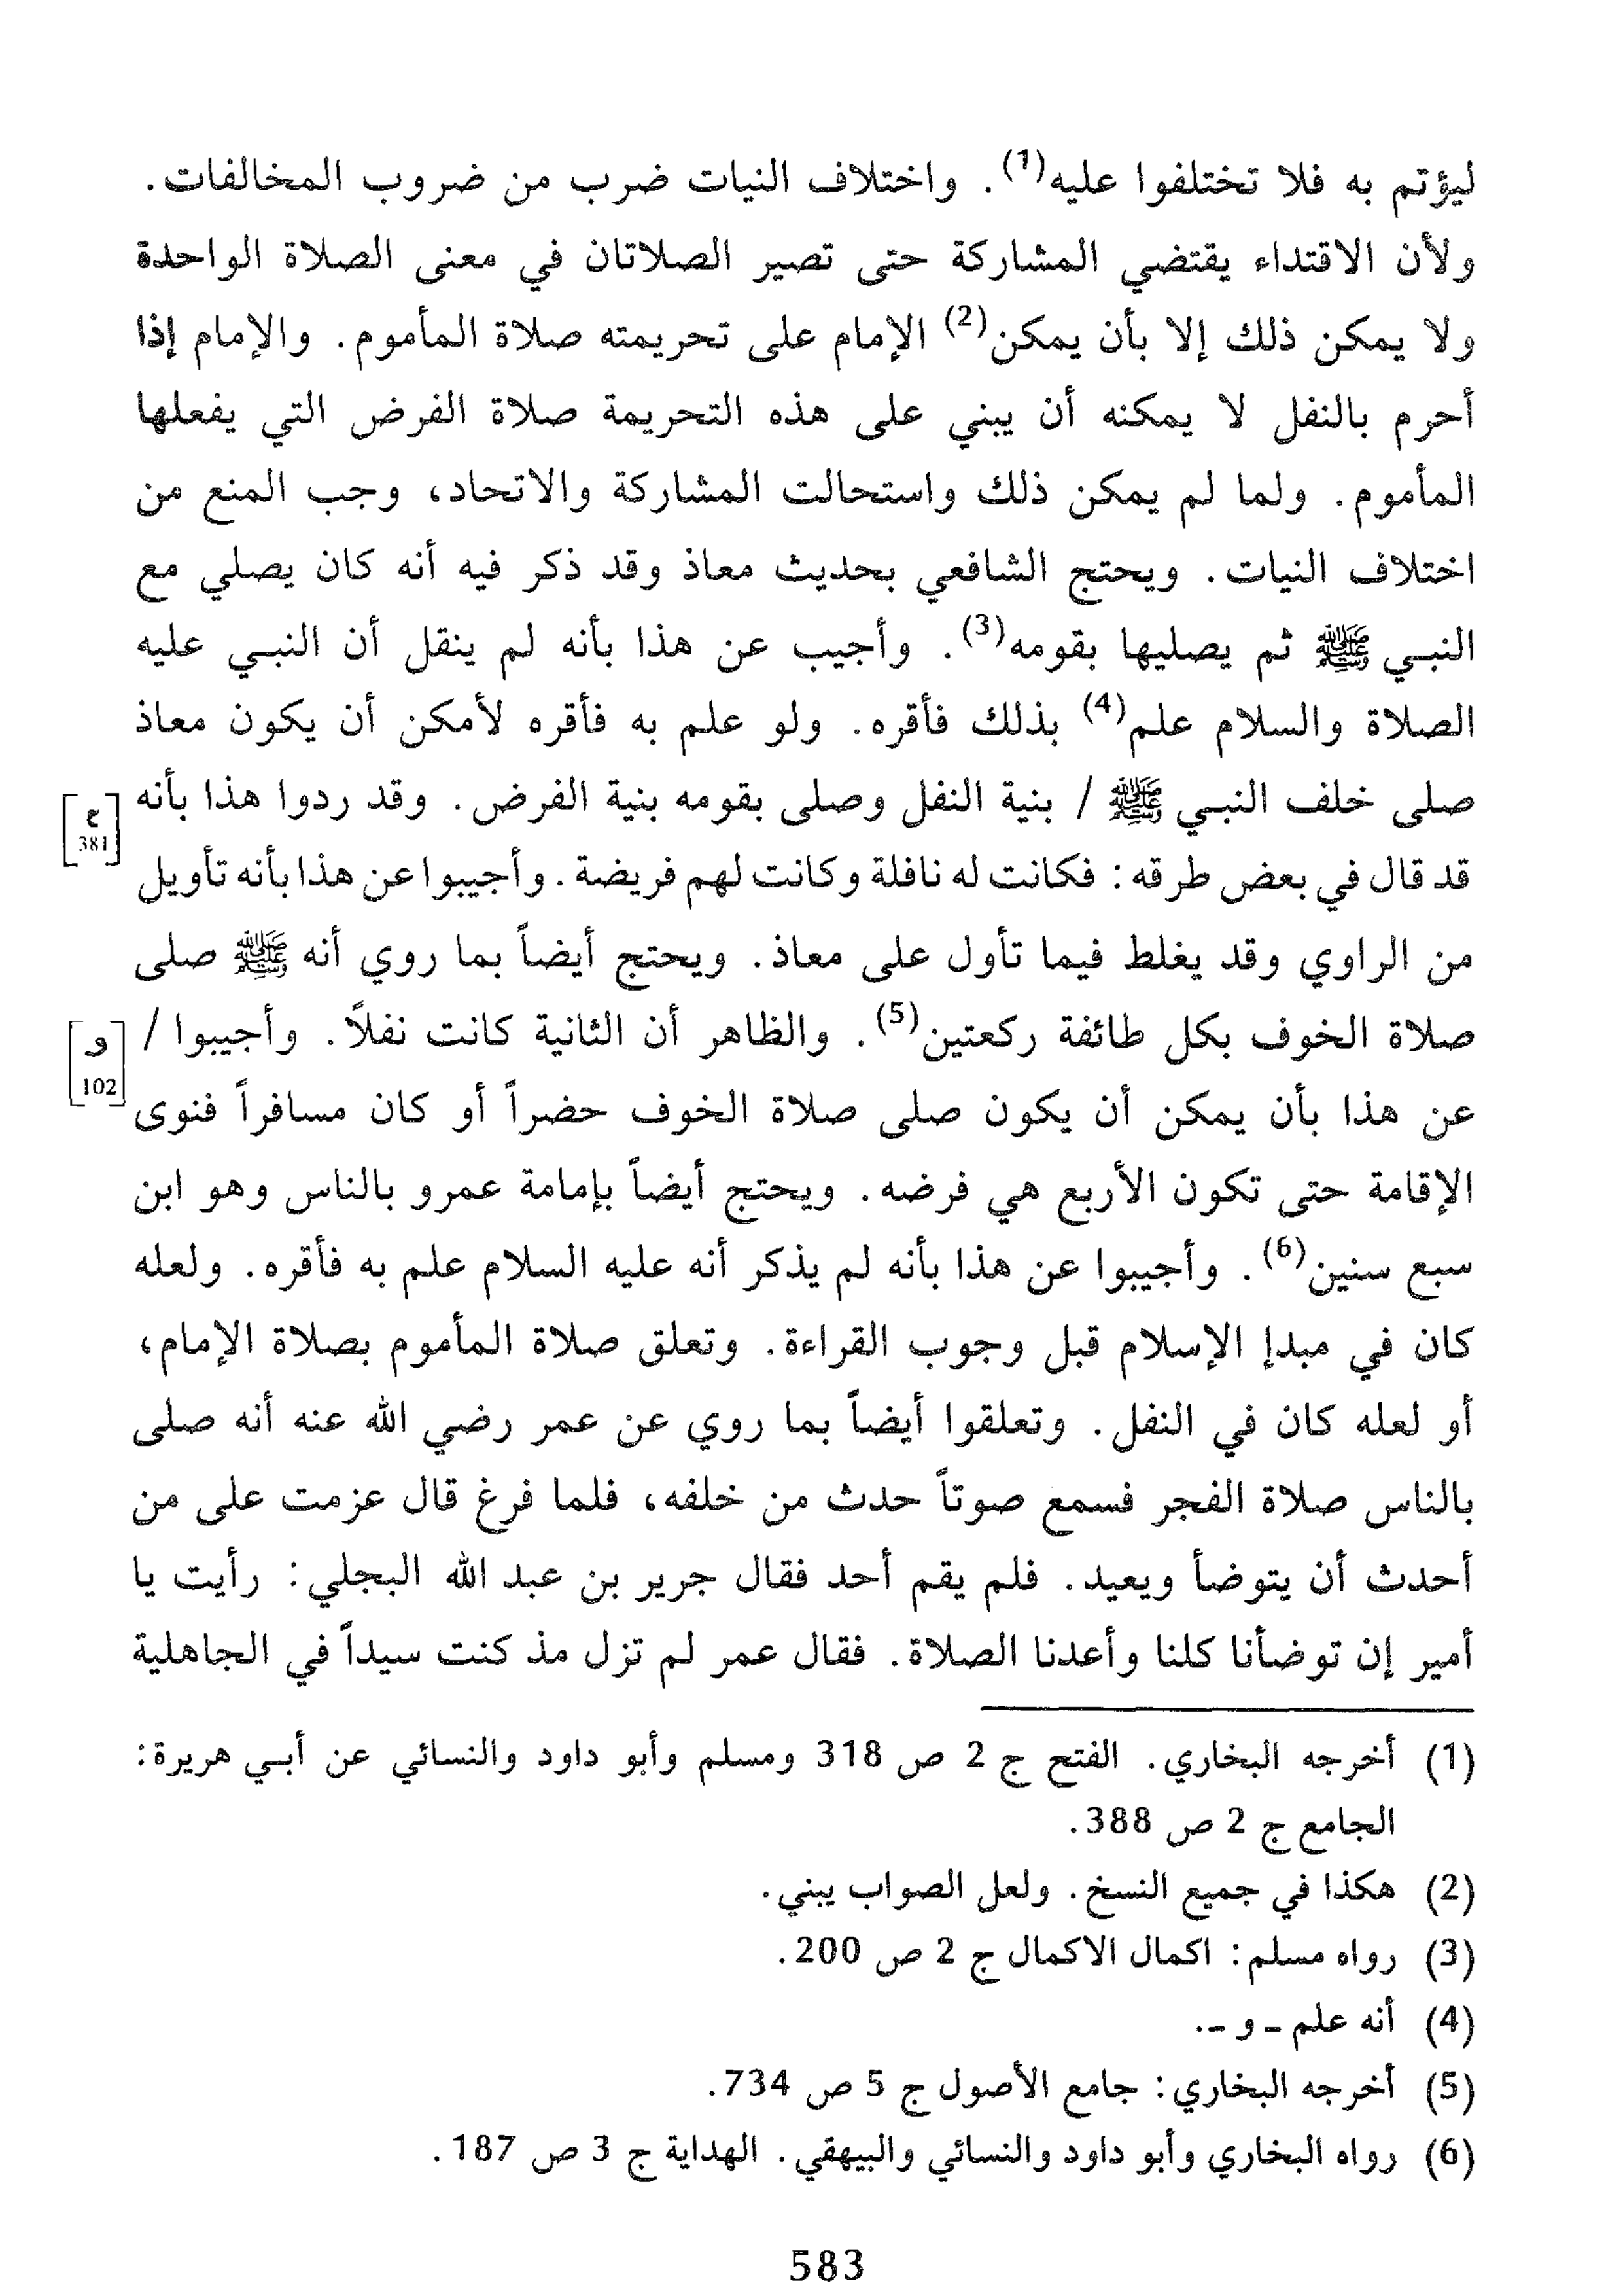 ليؤتم به فلا تختلفوا عليه(1). واختلاف النيات ضرب من ضروب المخالفات.
ولأن الاقتداء يقتضي المشاركة حتى تصير الصلاتان في معنى الصلاة الواحدة
ولا يمكن ذلك إلا بأن يمكن(2) الإمام على تحريمته صلاة المأموم. والإمام إذا
أحرم بالنفل لا يمكنه أن يبني على هذه التحريمة صلاة الفرض التي يفعلها
المأموم. ولما لم يمكن ذلك واستحالت المشاركة والاتحاد، وجب المنع من
اختلاف النيات. ويحتج الشافعي بحديث معاذ وقد ذكر فيه أنه كان يصلي مع
النبي ﷺ ثم يصليها بقومه(3). وأجيب عن هذا بأنه لم ينقل أن النبي عليه
الصلاة والسلام علم(4) بذلك فأقره. ولو علم به فأقره لأمكن أن يكون معاذ
صلى خلف النبي ﷺ / بنية النفل وصلى بقومه بنية الفرض. وقد ردوا هذا بأنه
[ع 381]
قد قال في بعض طرقه: فكانت له نافلة وكانت لهم فريضة. وأجيبوا عن هذا بأنه تأويل
من الراوي وقد يغلط فيما تأول على معاذ. ويحتج أيضاً بما روي أنه ﷺ صلى
صلاة الخوف بكل طائفة ركعتين(5). والظاهر أن الثانية كانت نفلاً. وأجيبوا /
[و 102]
عن هذا بأن يمكن أن يكون صلى صلاة الخوف حضراً أو كان مسافراً فنوى
الإقامة حتى تكون الأربع هي فرضه. ويحتج أيضاً بإمامة عمرو بالناس وهو ابن
سبع سنين(6). وأجيبوا عن هذا بأنه لم يذكر أنه عليه السلام علم به فأقره. ولعله
كان في مبدإ الإسلام قبل وجوب القراءة. وتعلق صلاة المأموم بصلاة الإمام،
أو لعله كان في النفل. وتعلقوا أيضاً بما روي عن عمر رضي الله عنه أنه صلى
بالناس صلاة الفجر فسمع صوتاً حدث من خلفه، فلما فرغ قال عزمت على من
أحدث أن يتوضأ ويعيد. فلم يقم أحد فقال جرير بن عبد الله البجلي: رأيت يا
أمير إن توضأنا كلنا وأعدنا الصلاة. فقال عمر لم تزل مذ كنت سيداً في الجاهلية
(1) أخرجه البخاري. الفتح ج 2 ص 318 ومسلم وأبو داود والنسائي عن أبي هريرة:
الجامع ج 2 ص 388.
(2) هكذا في جميع النسخ. ولعل الصواب يبني.
(3) رواه مسلم: اكمال الاكمال ج 2 ص 200.
(4) أنه علم ـ و ـ.
(5) أخرجه البخاري: جامع الأصول ج 5 ص 734.
(6) رواه البخاري وأبو داود والنسائي والبيهقي. الهداية ج 3 ص 187.
583